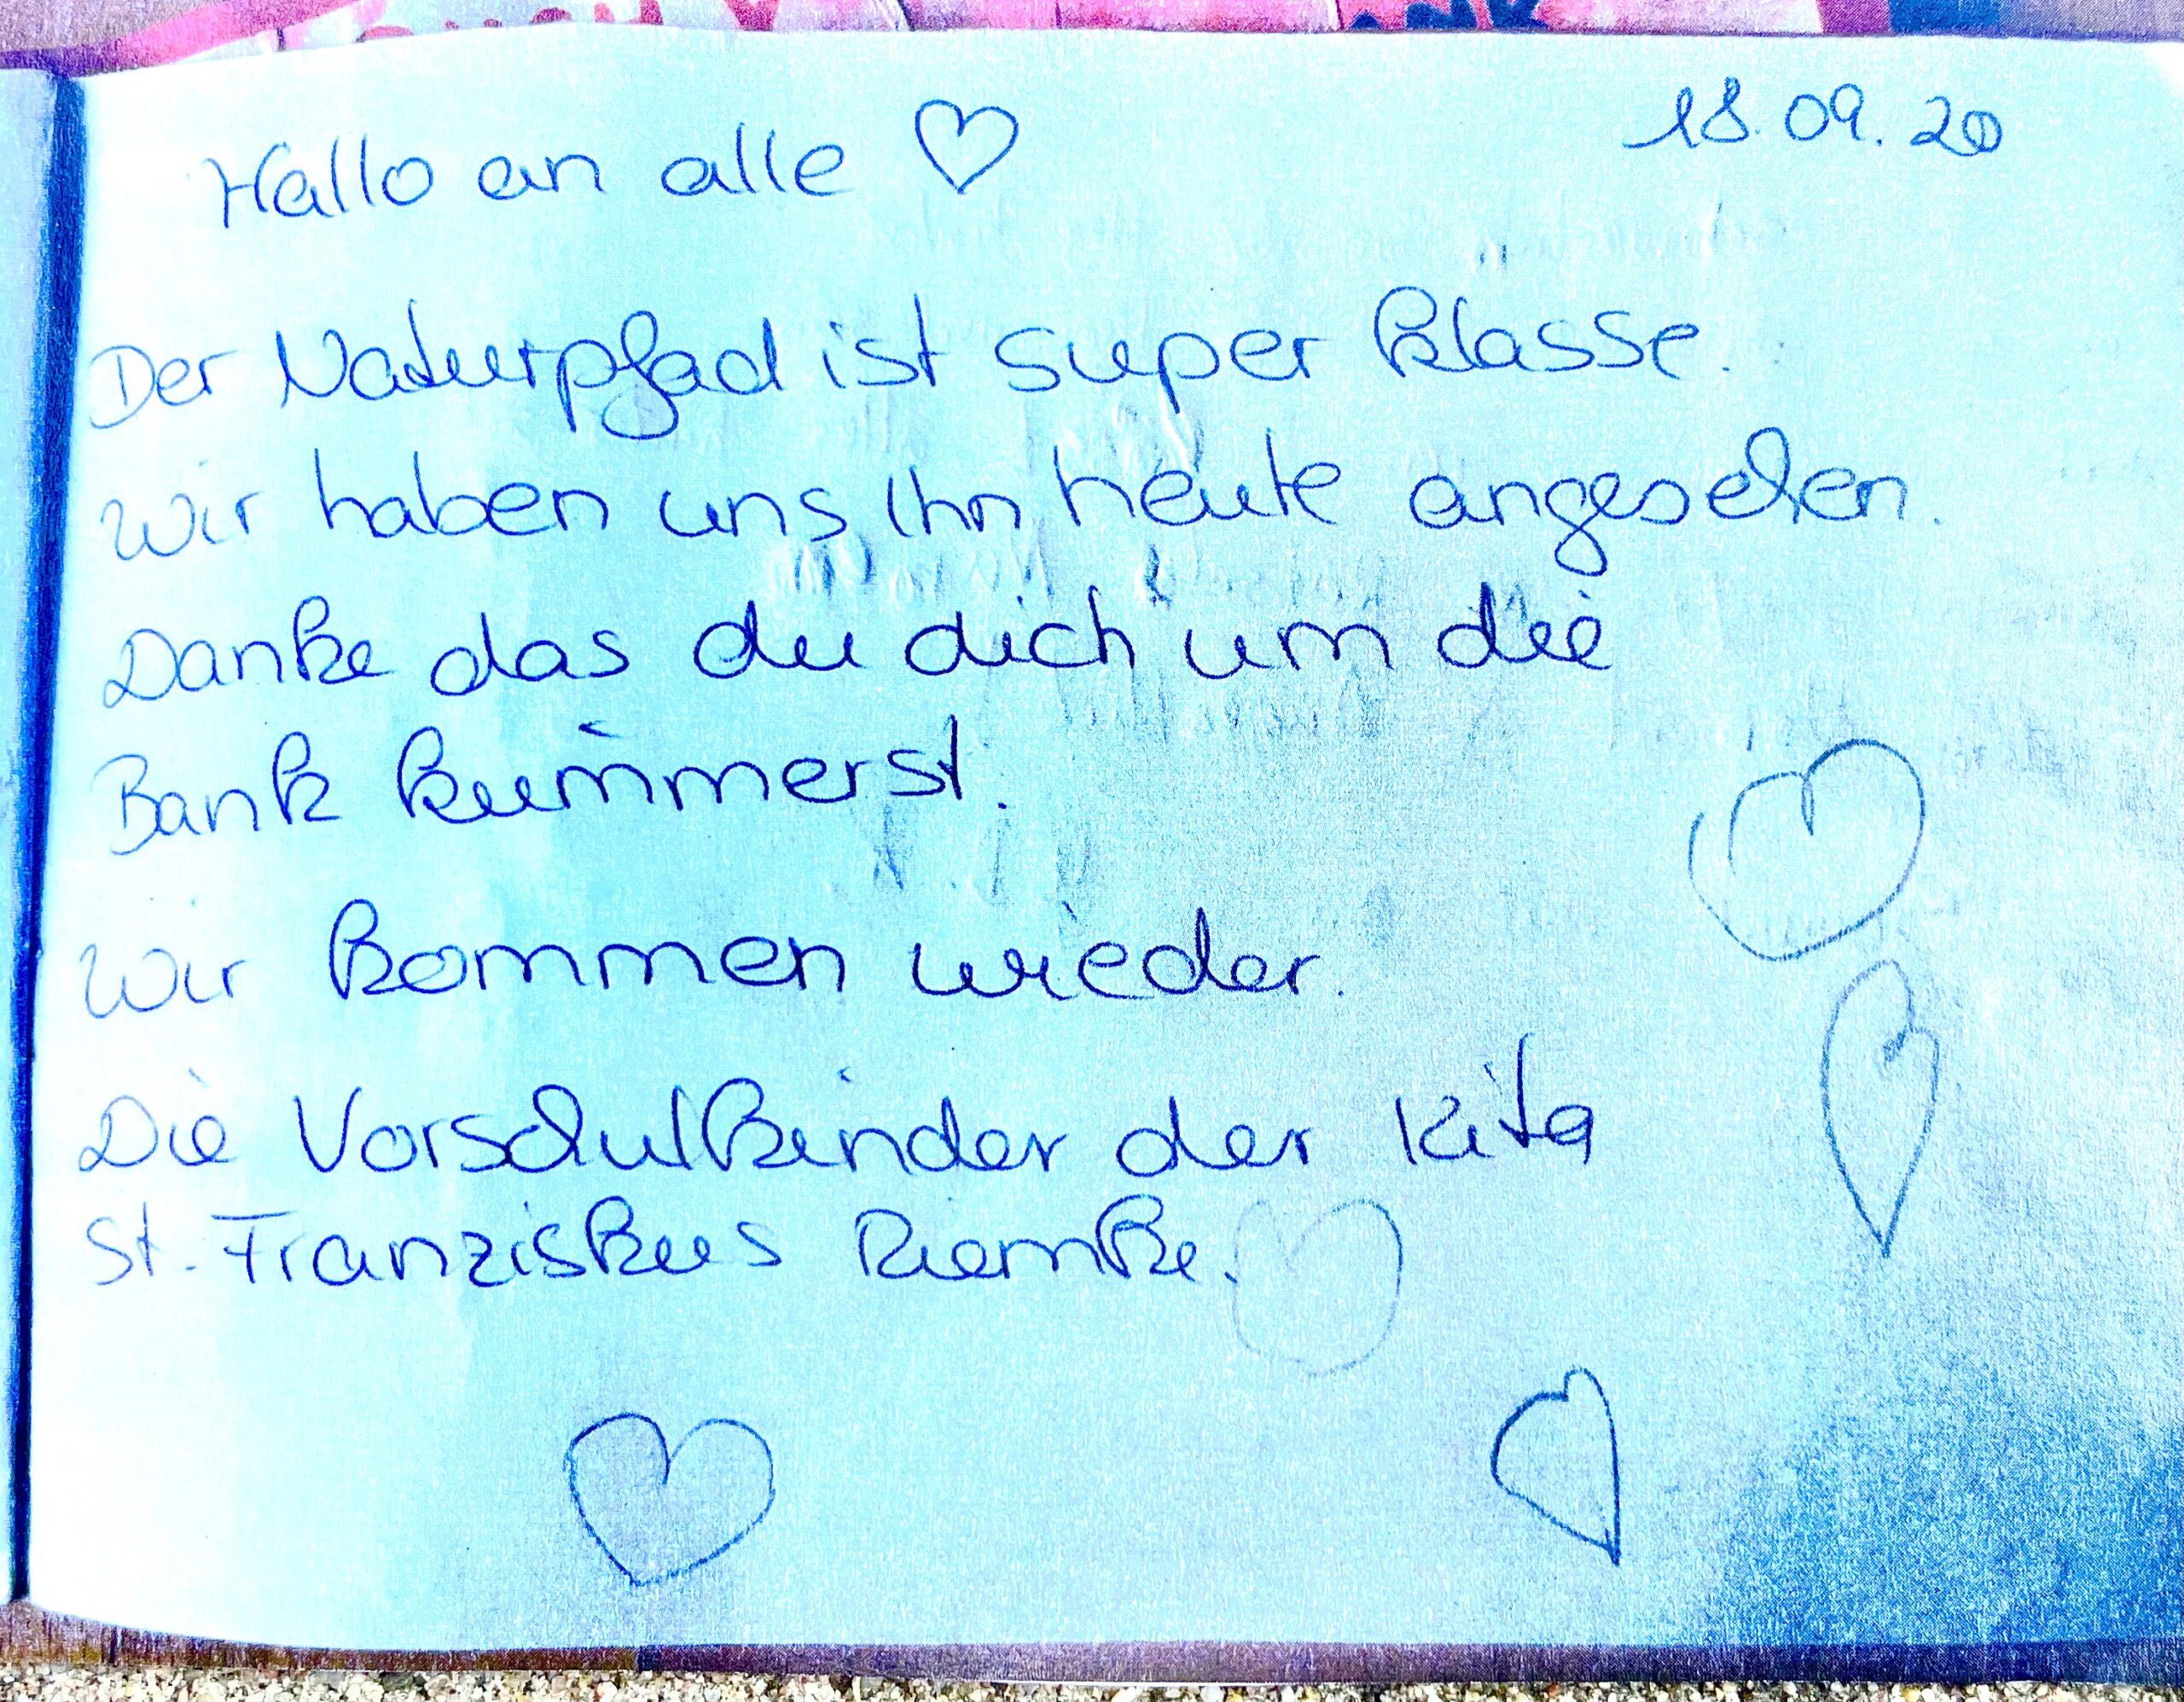 18.09.20
Hallo an alle ♡
Der Naturpfad ist super klasse.
Wir haben uns Ihn heute angesehen.
Danke das du dich um die
Bank kümmerst.
Wir kommen wieder.
Die Vorschulkinder der Kita
St. Franziskus Riemke.